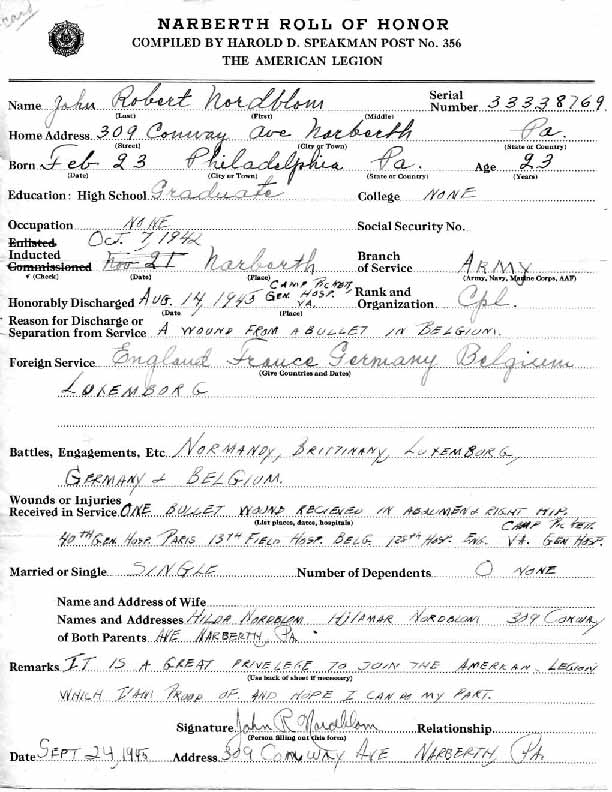 NARBERTH ROLL OF HONOR
COMPILED BY HAROLD D. SPEAKMAN POST No. 356
THE AMERICAN LEGION
Name John Robert Nordblom Serial Number 33338769
(Last) (First) (Middle)
Home Address 309 Conway Ave Narberth Pa.
(Street) (City or Town) (State or Country)
Born Feb 23 Philadelphia Pa. Age 23
(Date) (City or Town) (State or Country) (Years)
Education: High School Graduate College NONE
Occupation NONE Social Security No.
Enlisted Oct. 7, 1942
Inducted Nov 21 Narberth Branch of Service ARMY
Commissioned
✓ (Check) (Date) (Place) (Army, Navy, Marine Corps, AAF)
Honorably Discharged AUG. 14, 1945 CAMP PICKETT GEN. HOSP. VA. Rank and Organization Cpl.
(Date) (Place)
Reason for Discharge or
Separation from Service A WOUND FROM A BULLET IN BELGIUM.
Foreign Service England France Germany Belgium
(Give Countries and Dates)
LUXEMBORG
Battles, Engagements, Etc. NORMANDY, BRITTINANY, LUXEMBURG,
GERMANY & BELGIUM.
Wounds or Injuries
Received in Service ONE BULLET WOUND RECIEVED IN RIGHT HIP.
(List places, dates, hospitals)
40TH GEN. HOSP. PARIS 13TH FIELD HOSP. BELG. 128TH HOSP. ENG. CAMP PICKETT. VA. GEN HOSP.
Married or Single SINGLE Number of Dependents 0 NONE
Name and Address of Wife
Names and Addresses HILDA NORDBLOM HILAMAR NORDBLOM 309 CONWAY
of Both Parents AVE NARBERTH, PA.
Remarks IT IS A GREAT PRIVELEGE TO JOIN THE AMERICAN LEGION
(Use back of sheet if necessary)
WHICH I AM PROUD OF, AND HOPE I CAN DO MY PART.
Signature John R Nordblom Relationship
(Person filling out this form)
Date SEPT 24, 1945 Address 309 CONWAY AVE NARBERTH, PA